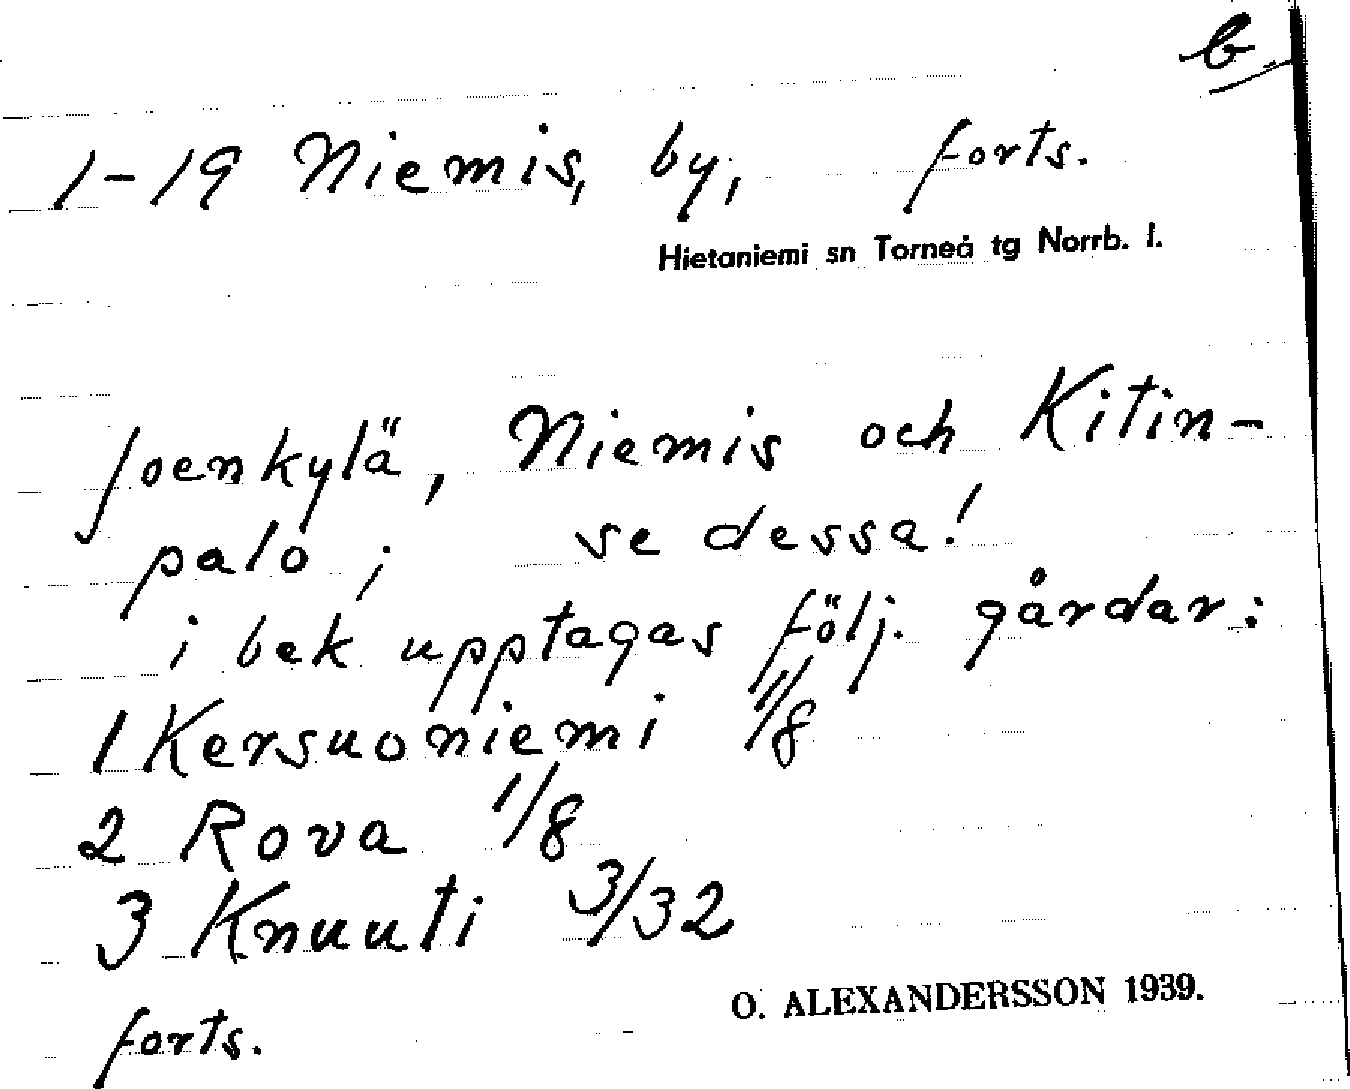 b
1-19 Niemis, by, forts.
Hietaniemi sn Torneå tg Norrb. l.
Joenkylä, Niemis och Kitin-
palo; se dessa!
i bek upptagas följ. gårdar:
1 Kersuoniemi 1/8
2 Rova 1/8
3 Knuuti 3/32
O. ALEXANDERSSON 1939.
forts.